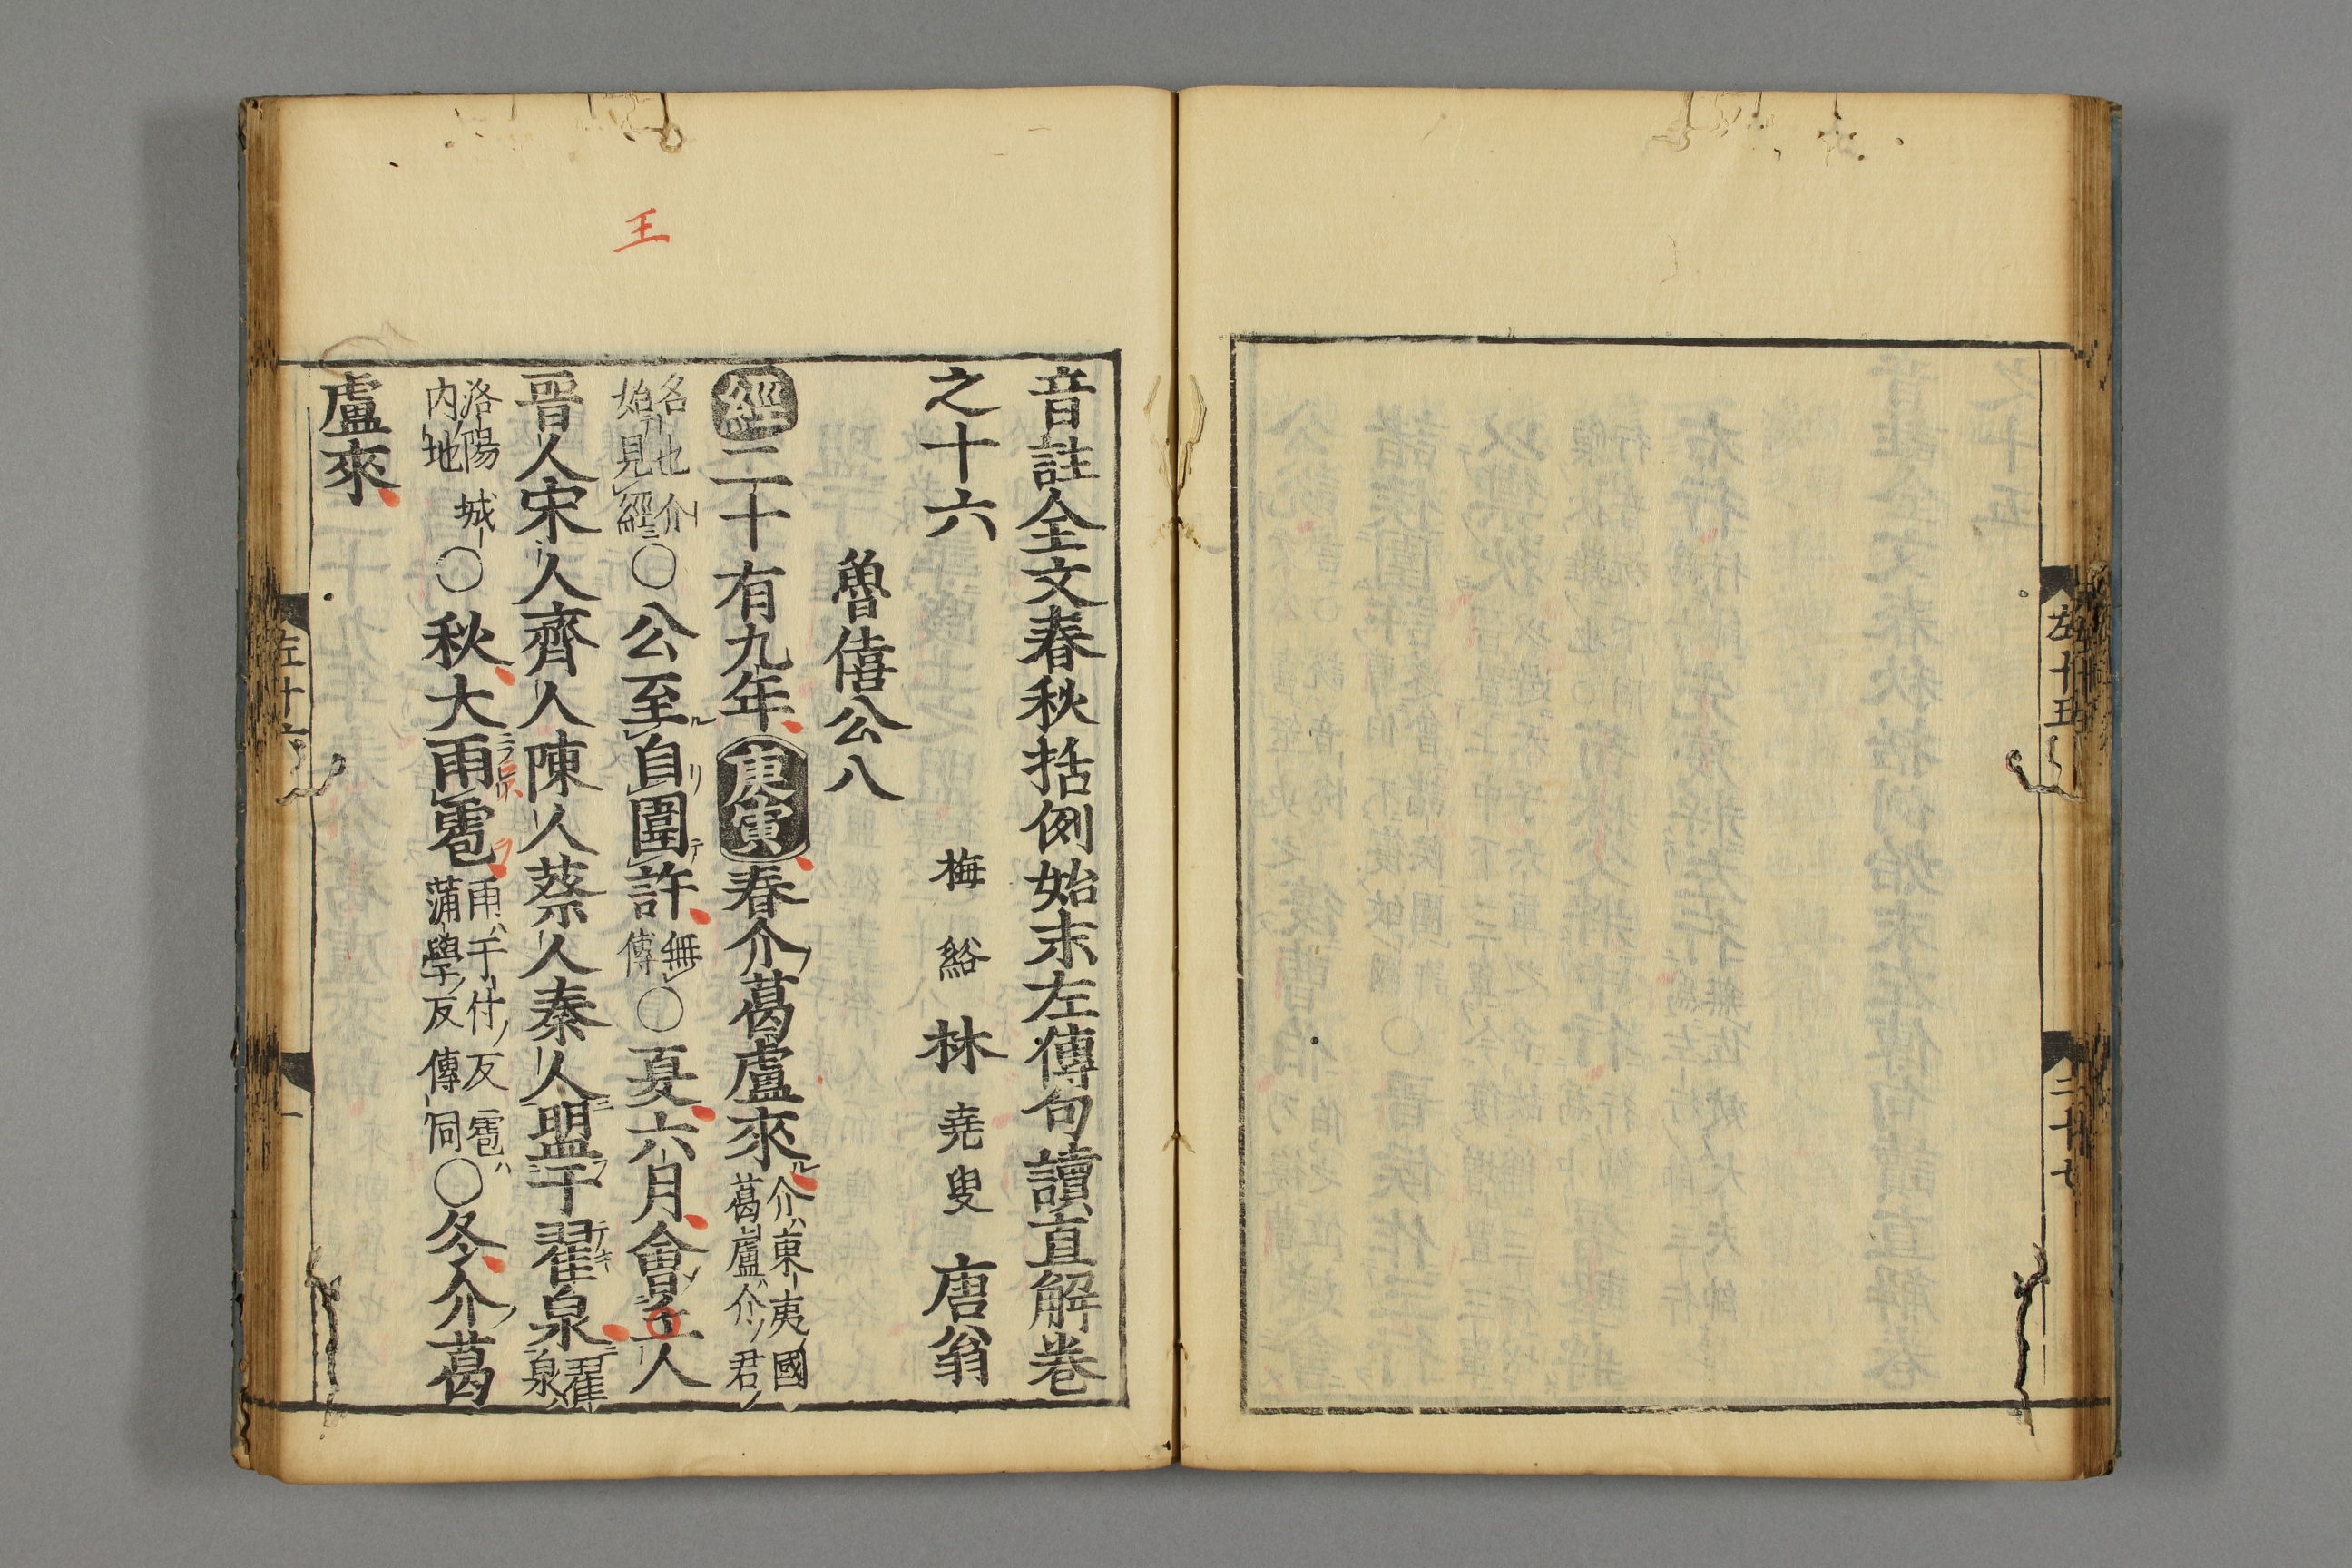 左十五
二十七
音註全文春秋括例始末左傳句讀直解卷
之十六
梅谿 林堯叟 唐翁
魯僖公八
經二十有九年庚寅春介葛盧來介東夷國
葛盧介君
名也介
始見經○公至自圍許無
傳○夏六月會 人
王
晉人宋人齊人陳人蔡人秦人盟于翟泉翟
泉
洛陽城
內地○秋大雨雹雨于付反雹
蒲學反傳同○冬介葛
盧來
左十六
一